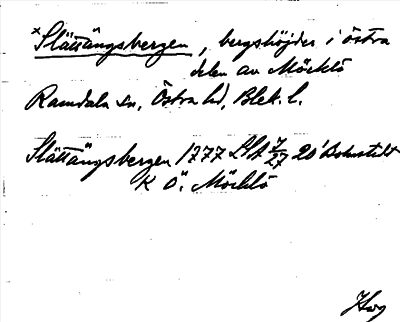 *Slättängsbergen, bergshöjder i östra
delen av Möcklö
Ramdala sn, Östra hd, Blek. l.
Slättängsbergen 1777 LSA 7/27 20 Bohustilt
K Ö. Möcklö